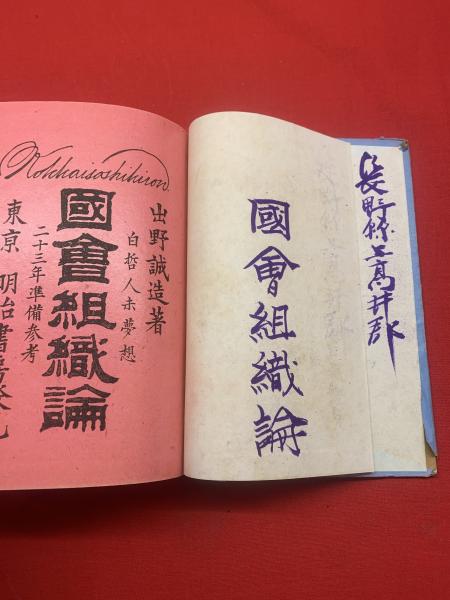 長野縣上高井郡
國會組織論
Kokkaisoshikiron.
出野誠造著
白哲人未夢想
國會組織論
二十三年準備参考
東京 明治書房